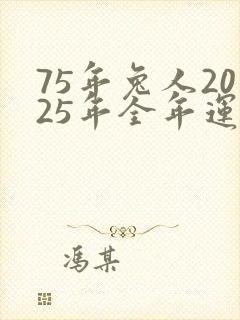 75年兔人20
25年全年運
馮某